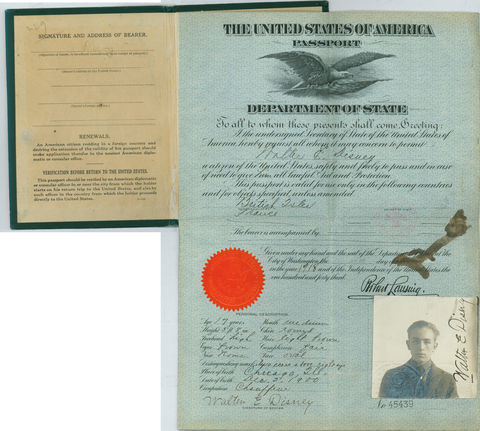 SIGNATURE AND ADDRESS OF BEARER.
RENEWALS.
An American citizen residing in a foreign country and
desiring the extension of the validity of his passport should
make application therefor to the nearest American diplo-
matic or consular office.
VERIFICATION BEFORE RETURN TO THE UNITED STATES.
This passport should be verified by an American diplomatic
or consular officer in or near the city from which the holder
starts on his return trip to the United States, and also by
such officer in the
directly to the United States.
THE UNITED STATES OF AMERICA
PASSPORT
DEPARTMENT OF STATE
To all to whom these presents shall come, Greeting:
I the undersigned Secretary of State of the United States of
America, hereby request all whom it may concern to permit
Walter E. Disney
a citizen of the United States, safely and freely to pass and in case
of need to give him all lawful Aid and Protection.
This passport is valid for use only in the following countries
and for objects specified, unless amended.
British Isles
France
The bearer is accompanied by
Given under my hand and the seal of the Department of State
City of Washington, the day
in the year 1918 and of the Independence of the United States the
one hundred and forty third.
Robert Lansing
PERSONAL DESCRIPTION.
Age 17 years Mouth medium
Height Chin round
Forehead high Hair light brown
Eyes brown Complexion fair
Nose Face oval
Distinguishing marks
Place of birth Chicago, Ill.
Date of birth Dec. 5, 1900
Occupation Chauffeur
Walter E Disney
SIGNATURE OF BEARER
Walter E Disney
No 45439